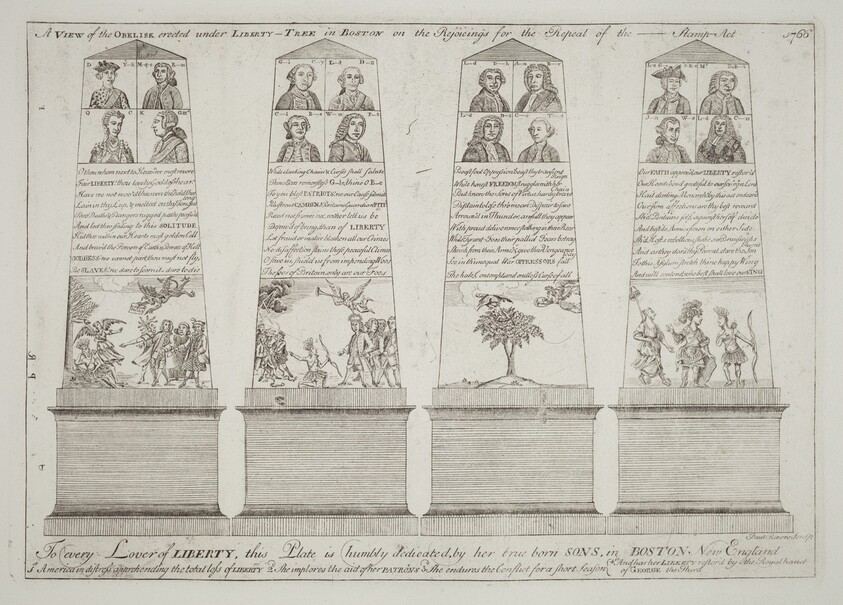 A VIEW of the OBELISK erected under LIBERTY-TREE in BOSTON on the Rejoicings for the Repeal of the —— Stamp-Act 1766
O thou whom next to Heav'n we most revere
Fair LIBERTY thou lovely Goddess hear
Have we not woo'd thee won thee held thee long
Lain in thy Lap & melted on thy Tongue
Thro Deaths & Dangers rugged paths pursu'd
And led thee smiling to this SOLITUDE
Hid thee within our Hearts most golden Cell
And brav'd the Powers of Earth & Powers of Hell
GODDESS we cannot part thou must not fly
Be SLAVES we dare to scorn it dare to die
While clanking Chains & Curses shall salute
Thine Ears remorseless G—le, thine O B—e
To you blest PATRIOTS we our Cause submit
Illustrious CAMDEN Britains Guardian PITT
Recede not frown not rather let us be
Depriv'd of being than of LIBERTY
Let fraud or malice blacken all our Crimes
No disaffection stains these peaceful Climes
O save us, shield us from impending Woes
The foes of Britain only are our Foes
Boast foul Oppression boast thy transient Reign
While honest FREEDOM struggles with her Chain
But know the Sons of Virtue hardy brave
Disdain to lose thro mean Despair to save
Arrous'd in Thunder awfull they appear
With proud deliverance stalking in their Rear
While Tyrant Foes their pallid Fears betray
Shrink from their Arms & give their Vengeance way
See in th' unequal War OPPRESSORS fall
The hate, Contempt, and endless Curse of all
Our FAITH approv'd our LIBERTY restor'd
Our Hearts bend gratefull to our sov'reign Lord
Hail darling Monarch by this act endear'd
Our firm affections are thy best reward
Sh'd Britains self, against her self divide
And hostile Armies frown on either Side
Sh'd Hosts rebellious shake our Brunswick's
And as they dar'd thy Parent dare the Son
To this Asylum stretch thine happy Wing
And we'll contend who best shall love our KING
Paul Revere Sculp
To every Lover of LIBERTY, this Plate is humbly dedicated, by her true born SONS, in BOSTON New England
1 America in distress apprehending the total loss of LIBERTY 2 She implores the aid of her PATRONS 3 She endures the Conflict for a short Season 4 And has her LIBERTY restor'd by the Royal hand
of GEORGE the Third